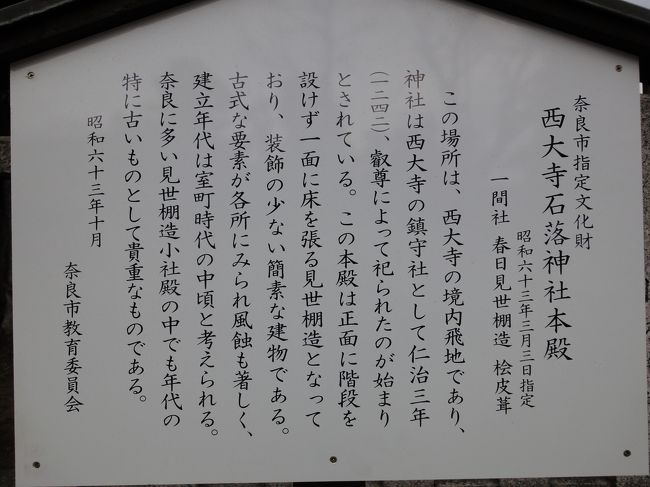 奈良市指定文化財
西大寺石落神社本殿
昭和六十三年三月三日指定
一間社 春日見世棚造 桧皮葺
この場所は、西大寺の境内飛地であり、
神社は西大寺の鎮守社として仁治三年
(一二四二)、叡尊によって祀られたのが始まり
とされている。この本殿は正面に階段を
設けず一面に床を張る見世棚造となって
おり、装飾の少ない簡素な建物である。
古式な要素が各所にみられ風蝕も著しく、
建立年代は室町時代の中頃と考えられる。
奈良に多い見世棚造小社殿の中でも年代の
特に古いものとして貴重なものである。
昭和六十三年十月
奈良市教育委員会